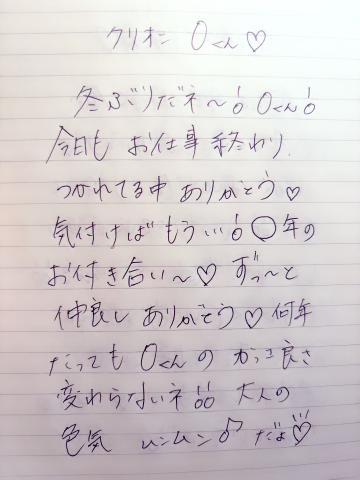 クリオン Oくん♡
冬ぶりだネ〜! Oくん!
今日も お仕事 終わり
つかれてる中 ありがとう♡
気付けば もう…! ◯年の
お付き合い〜♡ ず〜っと
仲良し ありがとう♡ 何年
たっても Oくんの かっこ良さ
変わらないネ!! 大人の
色気 ムンムン♪ だよ♡